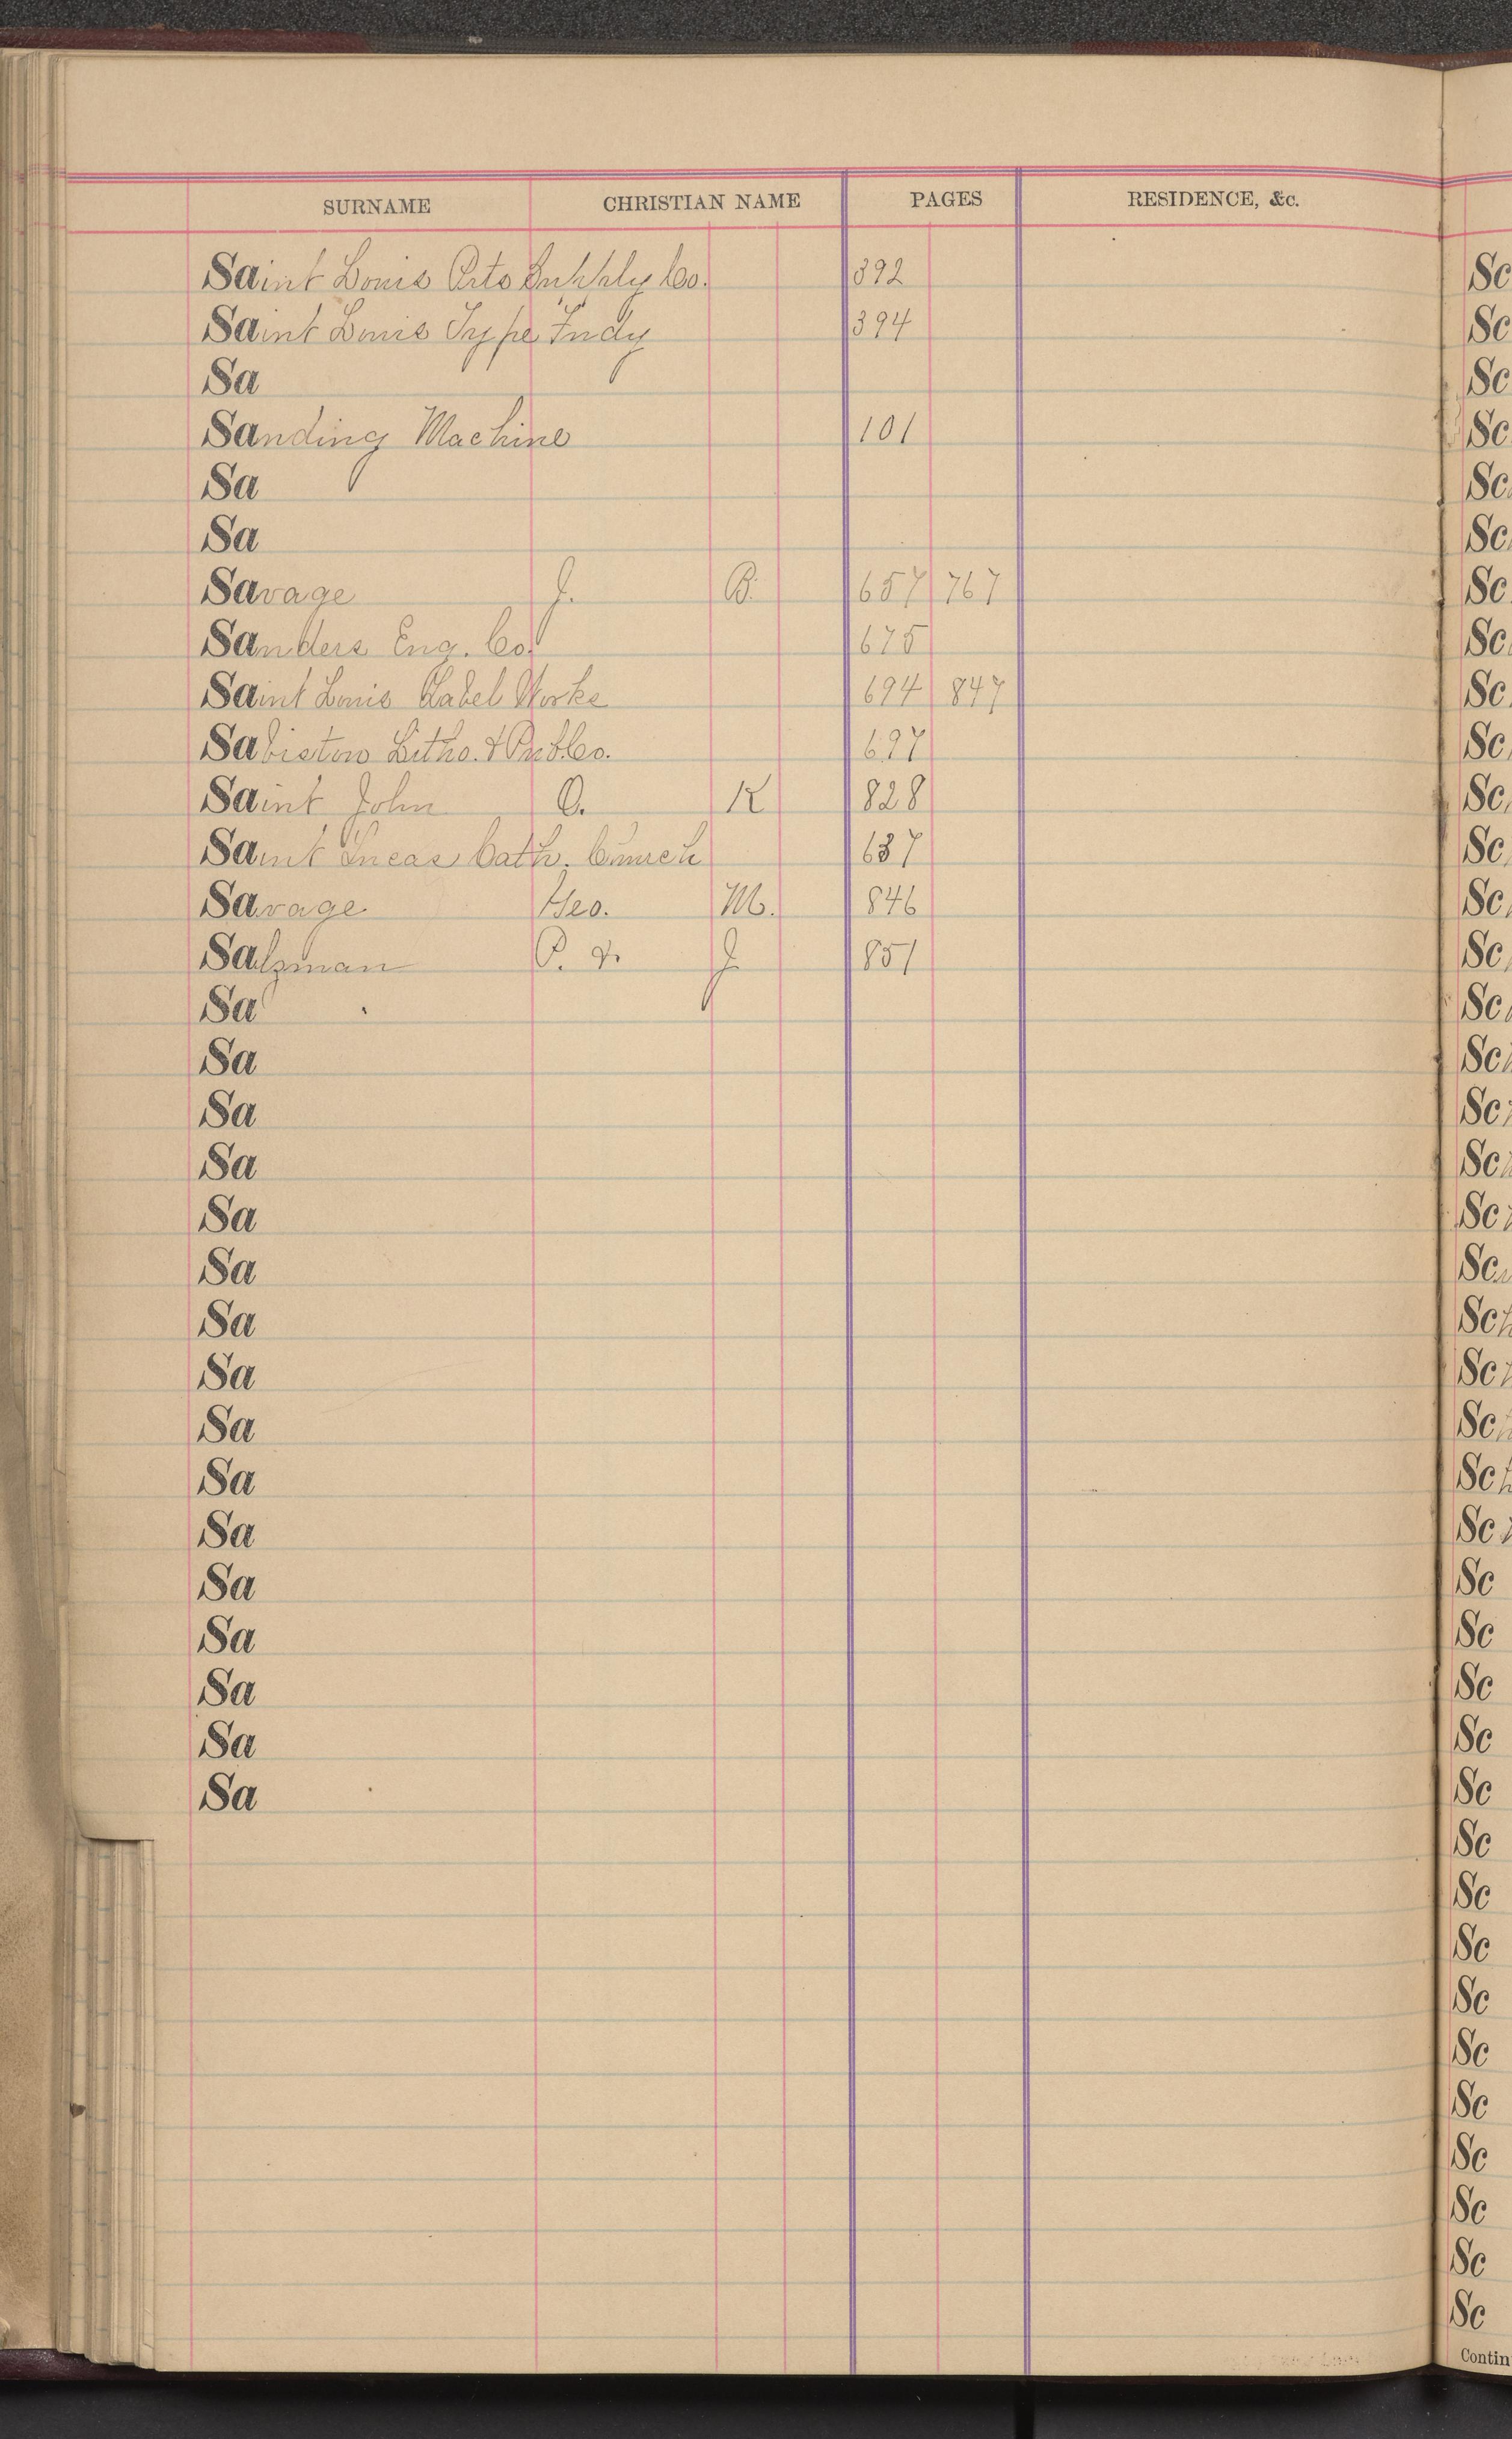 SURNAME CHRISTIAN NAME PAGES RESIDENCE, &c.
Saint Louis Prts Supply Co. 392
Saint Louis Type Fndy 394
Sa
Sanding Machine 101
Sa
Sa
Savage J. B. 657 767
Sanders Eng. Co. 675
Saint Louis Label Works 694 847
Sabiston Litho. & Pub. Co. 697
Saint John O. K 828
Saint Cath. Church 637
Savage Geo. M. 846
Salzman P. & J 851
Sa
Sa
Sa
Sa
Sa
Sa
Sa
Sa
Sa
Sa
Sa
Sa
Sa
Sa
Sa
Sa
Sc
Sc
Sc
Sc
Sc
Sc
Sc
Sc
Sc
Sc
Sc
Sc
Sc
Sc
Sc
Sc
Sc
Sc
Sc
Sc
Sch
Sc
Sc
Sch
Sc
Sc
Sc
Sc
Sc
Sc
Sc
Sc
Sc
Sc
Sc
Sc
Sc
Sc
Sc
Sc
Contin